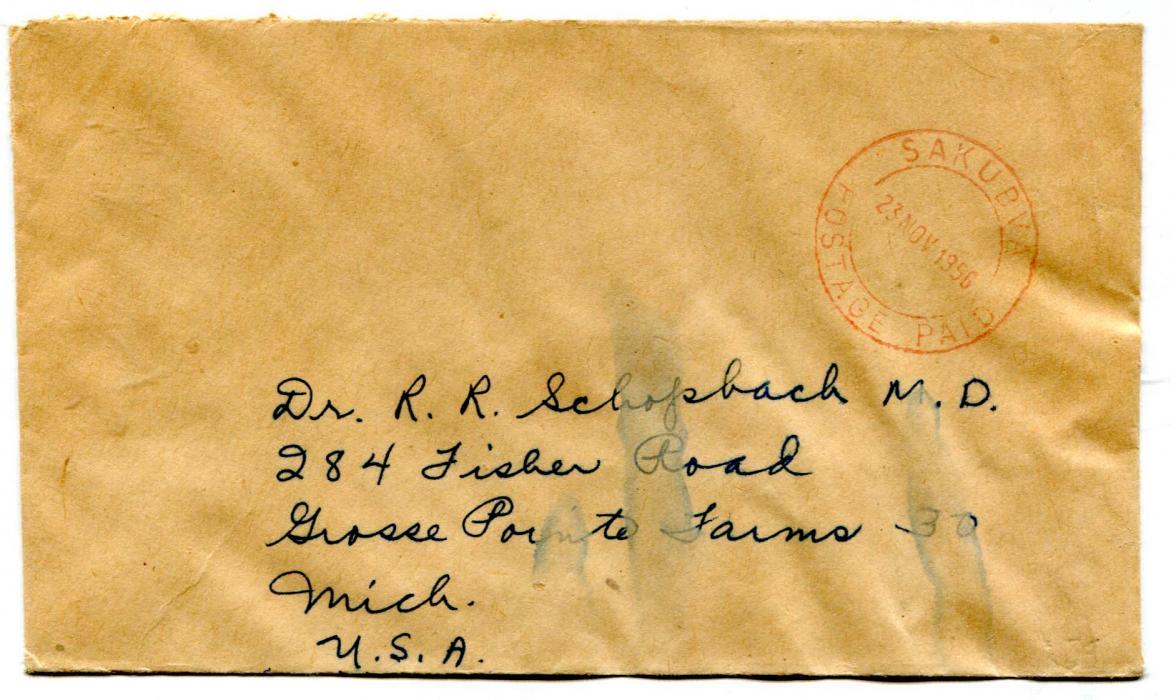 SAKUBVA
23 NOV 1956
POSTAGE PAID
Dr. R. R. Schopbach M. D.
284 Fisher Road
Grosse Pointe Farms 30
Mich.
U. S. A.